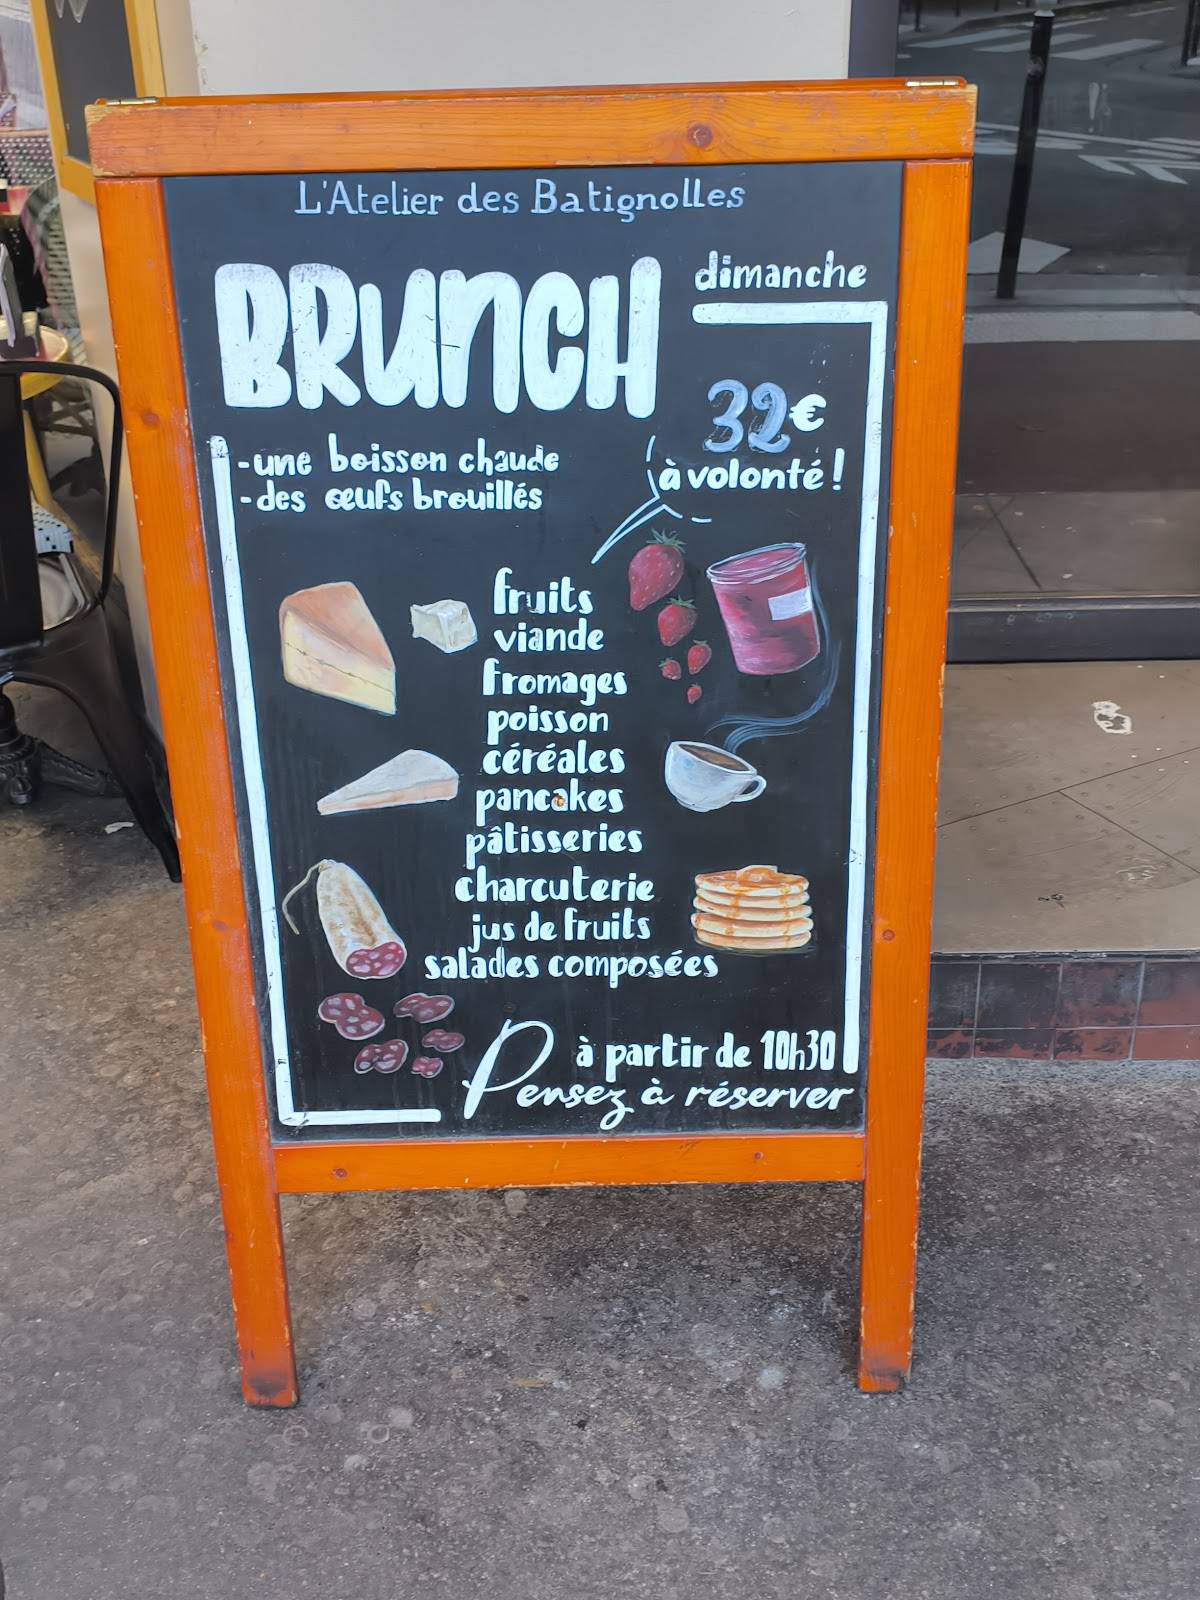 L'Atelier des Batignolles
BRUNCH
dimanche
32€
à volonté !
-une boisson chaude
-des œufs brouillés
fruits
viande
fromages
poisson
céréales
pancakes
pâtisseries
charcuterie
jus de fruits
salades composées
à partir de 10h30
Pensez à réserver